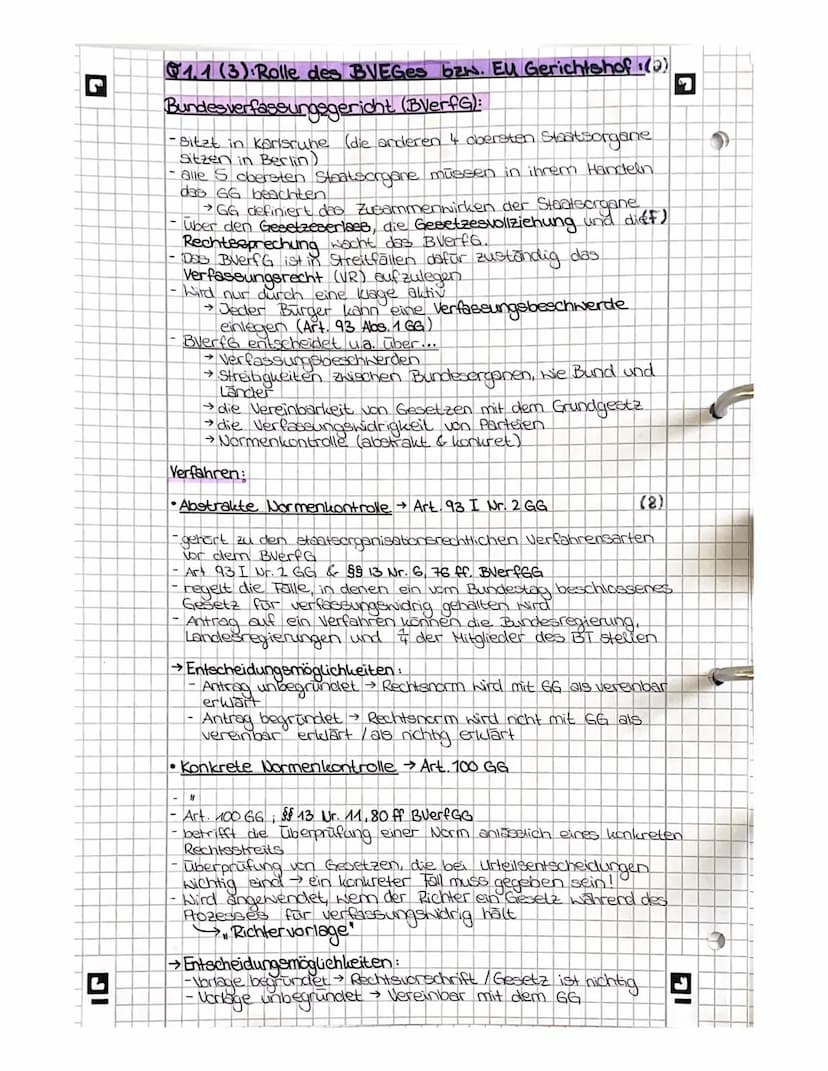 Q1.1 (3): Rolle des BVEGes bzw. EU Gerichtshof :(2)
Bundesverfassungsgericht (BVerfG):
- sitzt in Karlsruhe (die anderen 4 obersten Staatsorgane
sitzen in Berlin)
- alle 5 obersten Staatsorgane müssen in ihrem Handeln
das GG beachten
→ GG definiert das Zusammenwirken der Staatsorgane
- über den Gesetzeserlass, die Gesetzesvollziehung und die (F)
Rechtssprechung wacht das BVerfG.
- Das BVerfG ist in Streitfällen dafür zuständig das
Verfassungsrecht (VR) aufzulegen
- Wird nur durch eine Klage aktiv
→ Jeder Bürger kann eine Verfassungsbeschwerde
einlegen (Art. 93 Abs. 1 GG)
- BVerfG entscheidet u.a. über...
→ Verfassungsbeschwerden
→ Streitigkeiten zwischen Bundesorganen, wie Bund und
Länder
→ die Vereinbarkeit von Gesetzen mit dem Grundgesetz
→ die Verfassungswidrigkeit von Parteien
→ Normenkontrolle (abstrakt & konkret)
Verfahren:
• Abstrakte Normenkontrolle → Art. 93 I Nr. 2 GG (2)
- gehört zu den staatsorganisationsrechtlichen Verfahrensarten
vor dem BVerfG
- Art 93 I Nr. 2 GG & §§ 13 Nr. 6, 76 ff. BVerfGG
- regelt die Fälle, in denen ein vom Bundestag beschlossenes
Gesetz für verfassungswidrig gehalten wird
- Antrag auf ein Verfahren können die Bundesregierung,
Landesregierungen und der Mitglieder des BT stellen
→ Entscheidungsmöglichkeiten:
- Antrag unbegründet → Rechtsnorm wird mit GG als vereinbar
erklärt
- Antrag begründet → Rechtsnorm wird nicht mit GG als
vereinbar erklärt / als nichtig erklärt
• Konkrete Normenkontrolle → Art. 100 GG
- "
- Art. 100 GG ; §§ 13 Nr. 11, 80 ff BVerfGG
- betrifft die Überprüfung einer Norm anlässlich eines konkreten
Rechtsstreits
- Überprüfung von Gesetzen, die bei Urteilsentscheidungen
wichtig sind → ein konkreter Fall muss gegeben sein!
- Wird angewendet, wenn der Richter ein Gesetz während des
Prozesses für verfassungswidrig hält
↳ „Richtervorlage"
→ Entscheidungsmöglichkeiten:
- Vorlage begründet → Rechtsvorschrift / Gesetz ist nichtig
- Vorlage unbegründet → Vereinbar mit dem GG